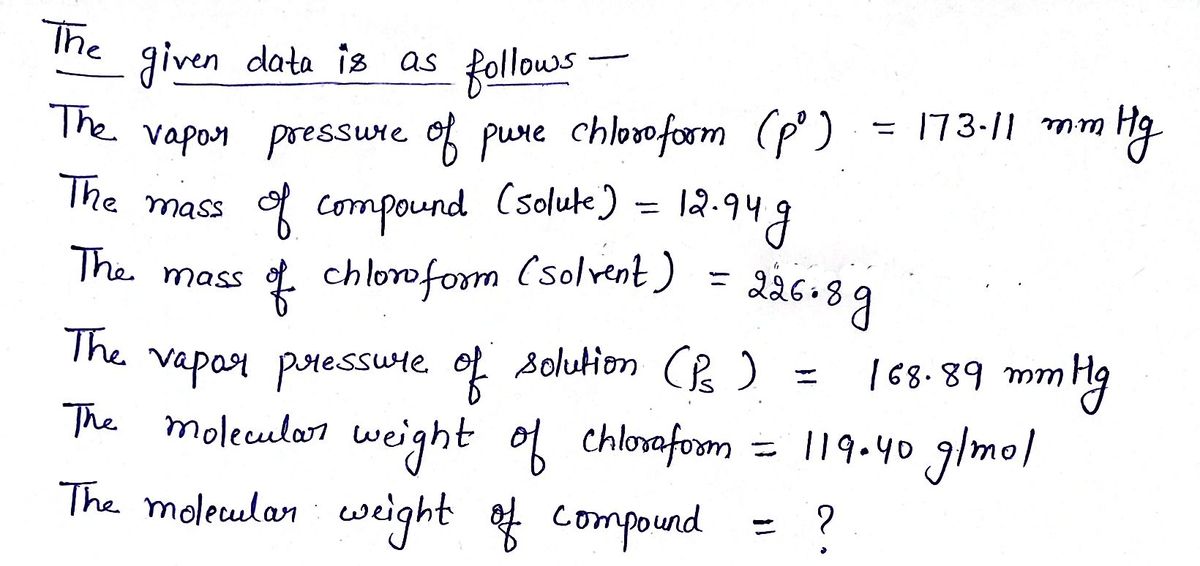 The given data is as follows —
The vapor pressure of pure chloroform (p⁰) = 173.11 mm Hg
The mass of compound (solute) = 12.94 g
The mass of chloroform (solvent) = 226.8 g
The vapor pressure of solution (Ps) = 168.89 mm Hg
The molecular weight of chloraform = 119.40 g/mol
The molecular weight of compound = ?